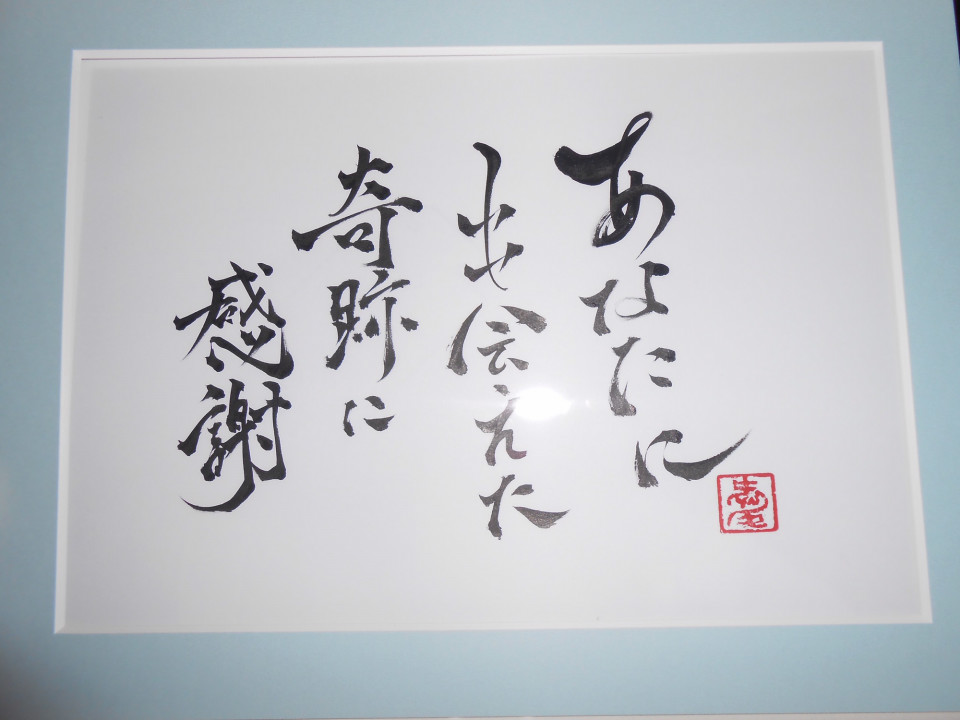 あなたに
出会えた
奇跡に
感謝